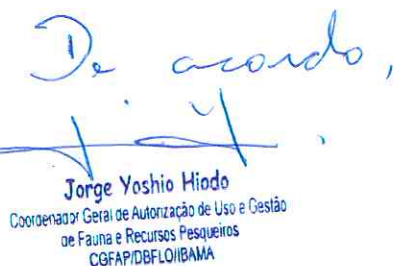 De acordo,
Jorge Yoshio Hiodo
Coordenador Geral de Autorização de Uso e Gestão
de Fauna e Recursos Pesqueiros
CGFAP/DBFLO/IBAMA